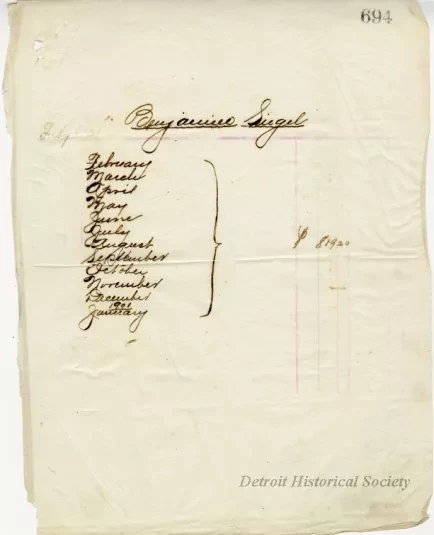 694
Benjamin Siegel
February
March
April
May
June
July
August
September
October
November
December
1901
January
$ 819 20
Detroit Historical Society